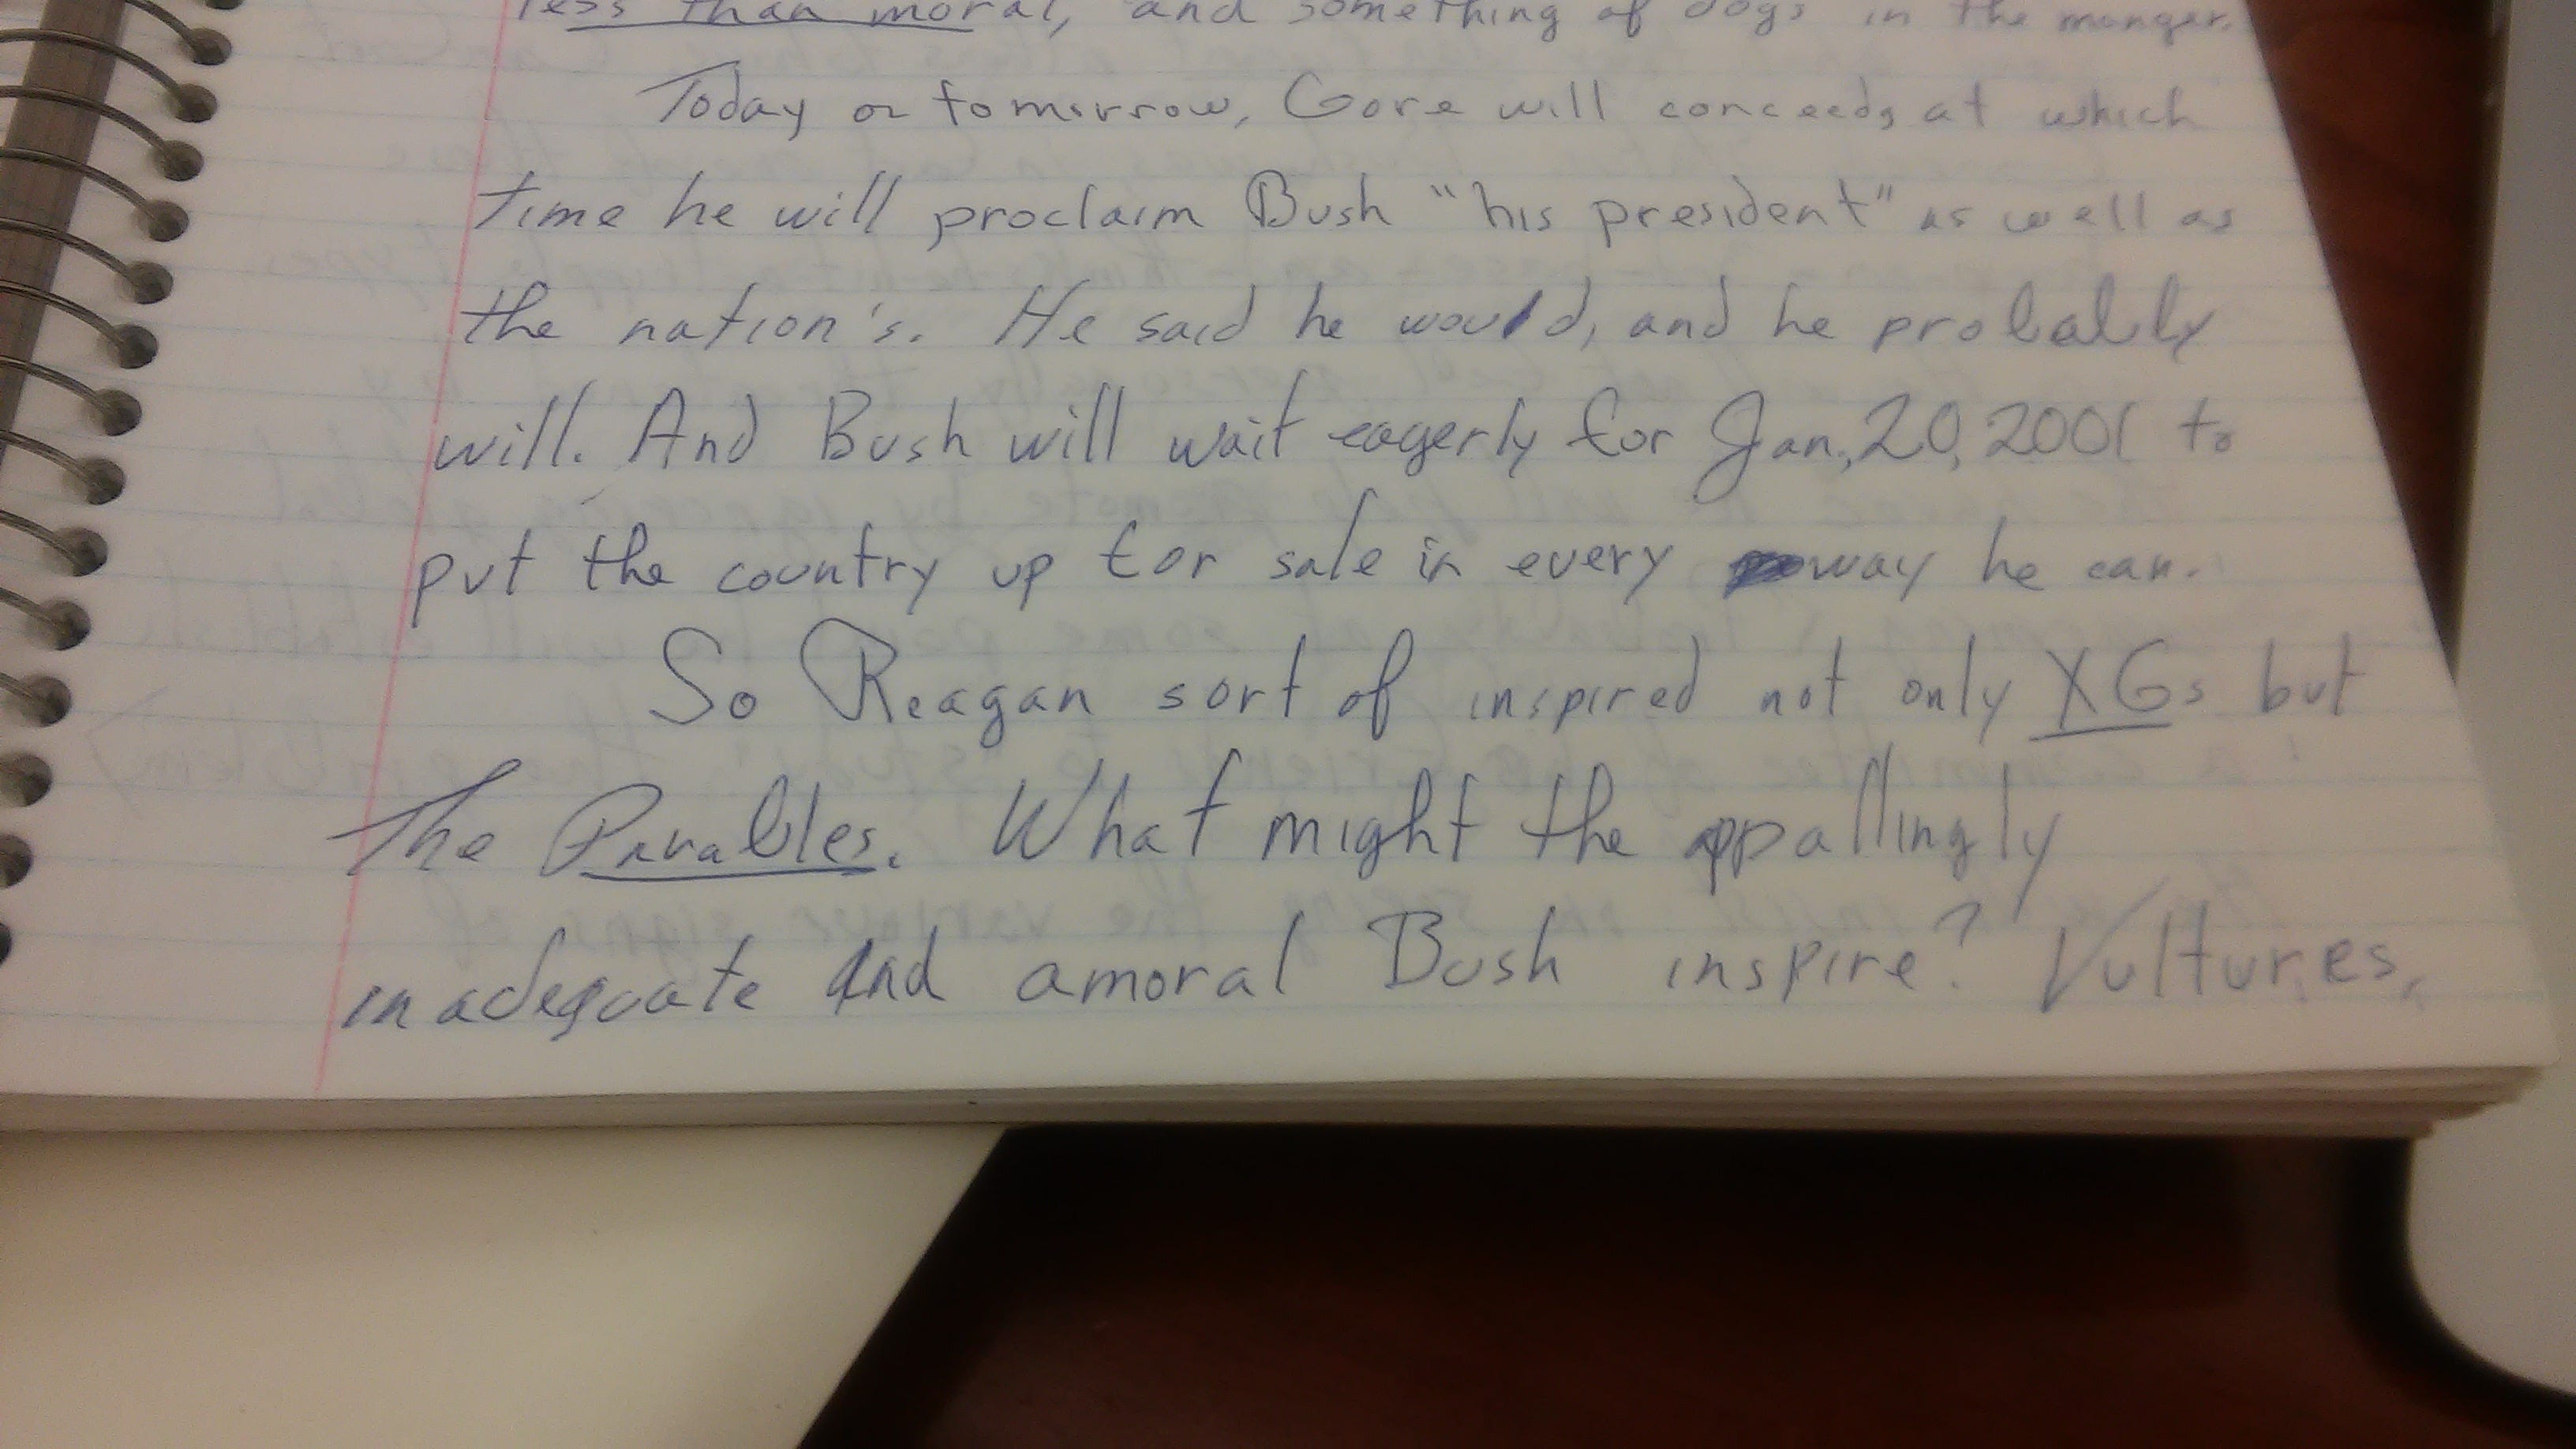 less than moral, and something of dogs in the manger.
Today or tomorrow, Gore will conceeds at which
time he will proclaim Bush "his president" as well as
the nation's. He said he would, and he probably
will. And Bush will wait eagerly for Jan., 20, 2001 to
put the country up for sale in every way he can.
So Reagan sort of inspired not only XGs but
The Parables. What might the appallingly
inadequate and amoral Bush inspire? Vultures.